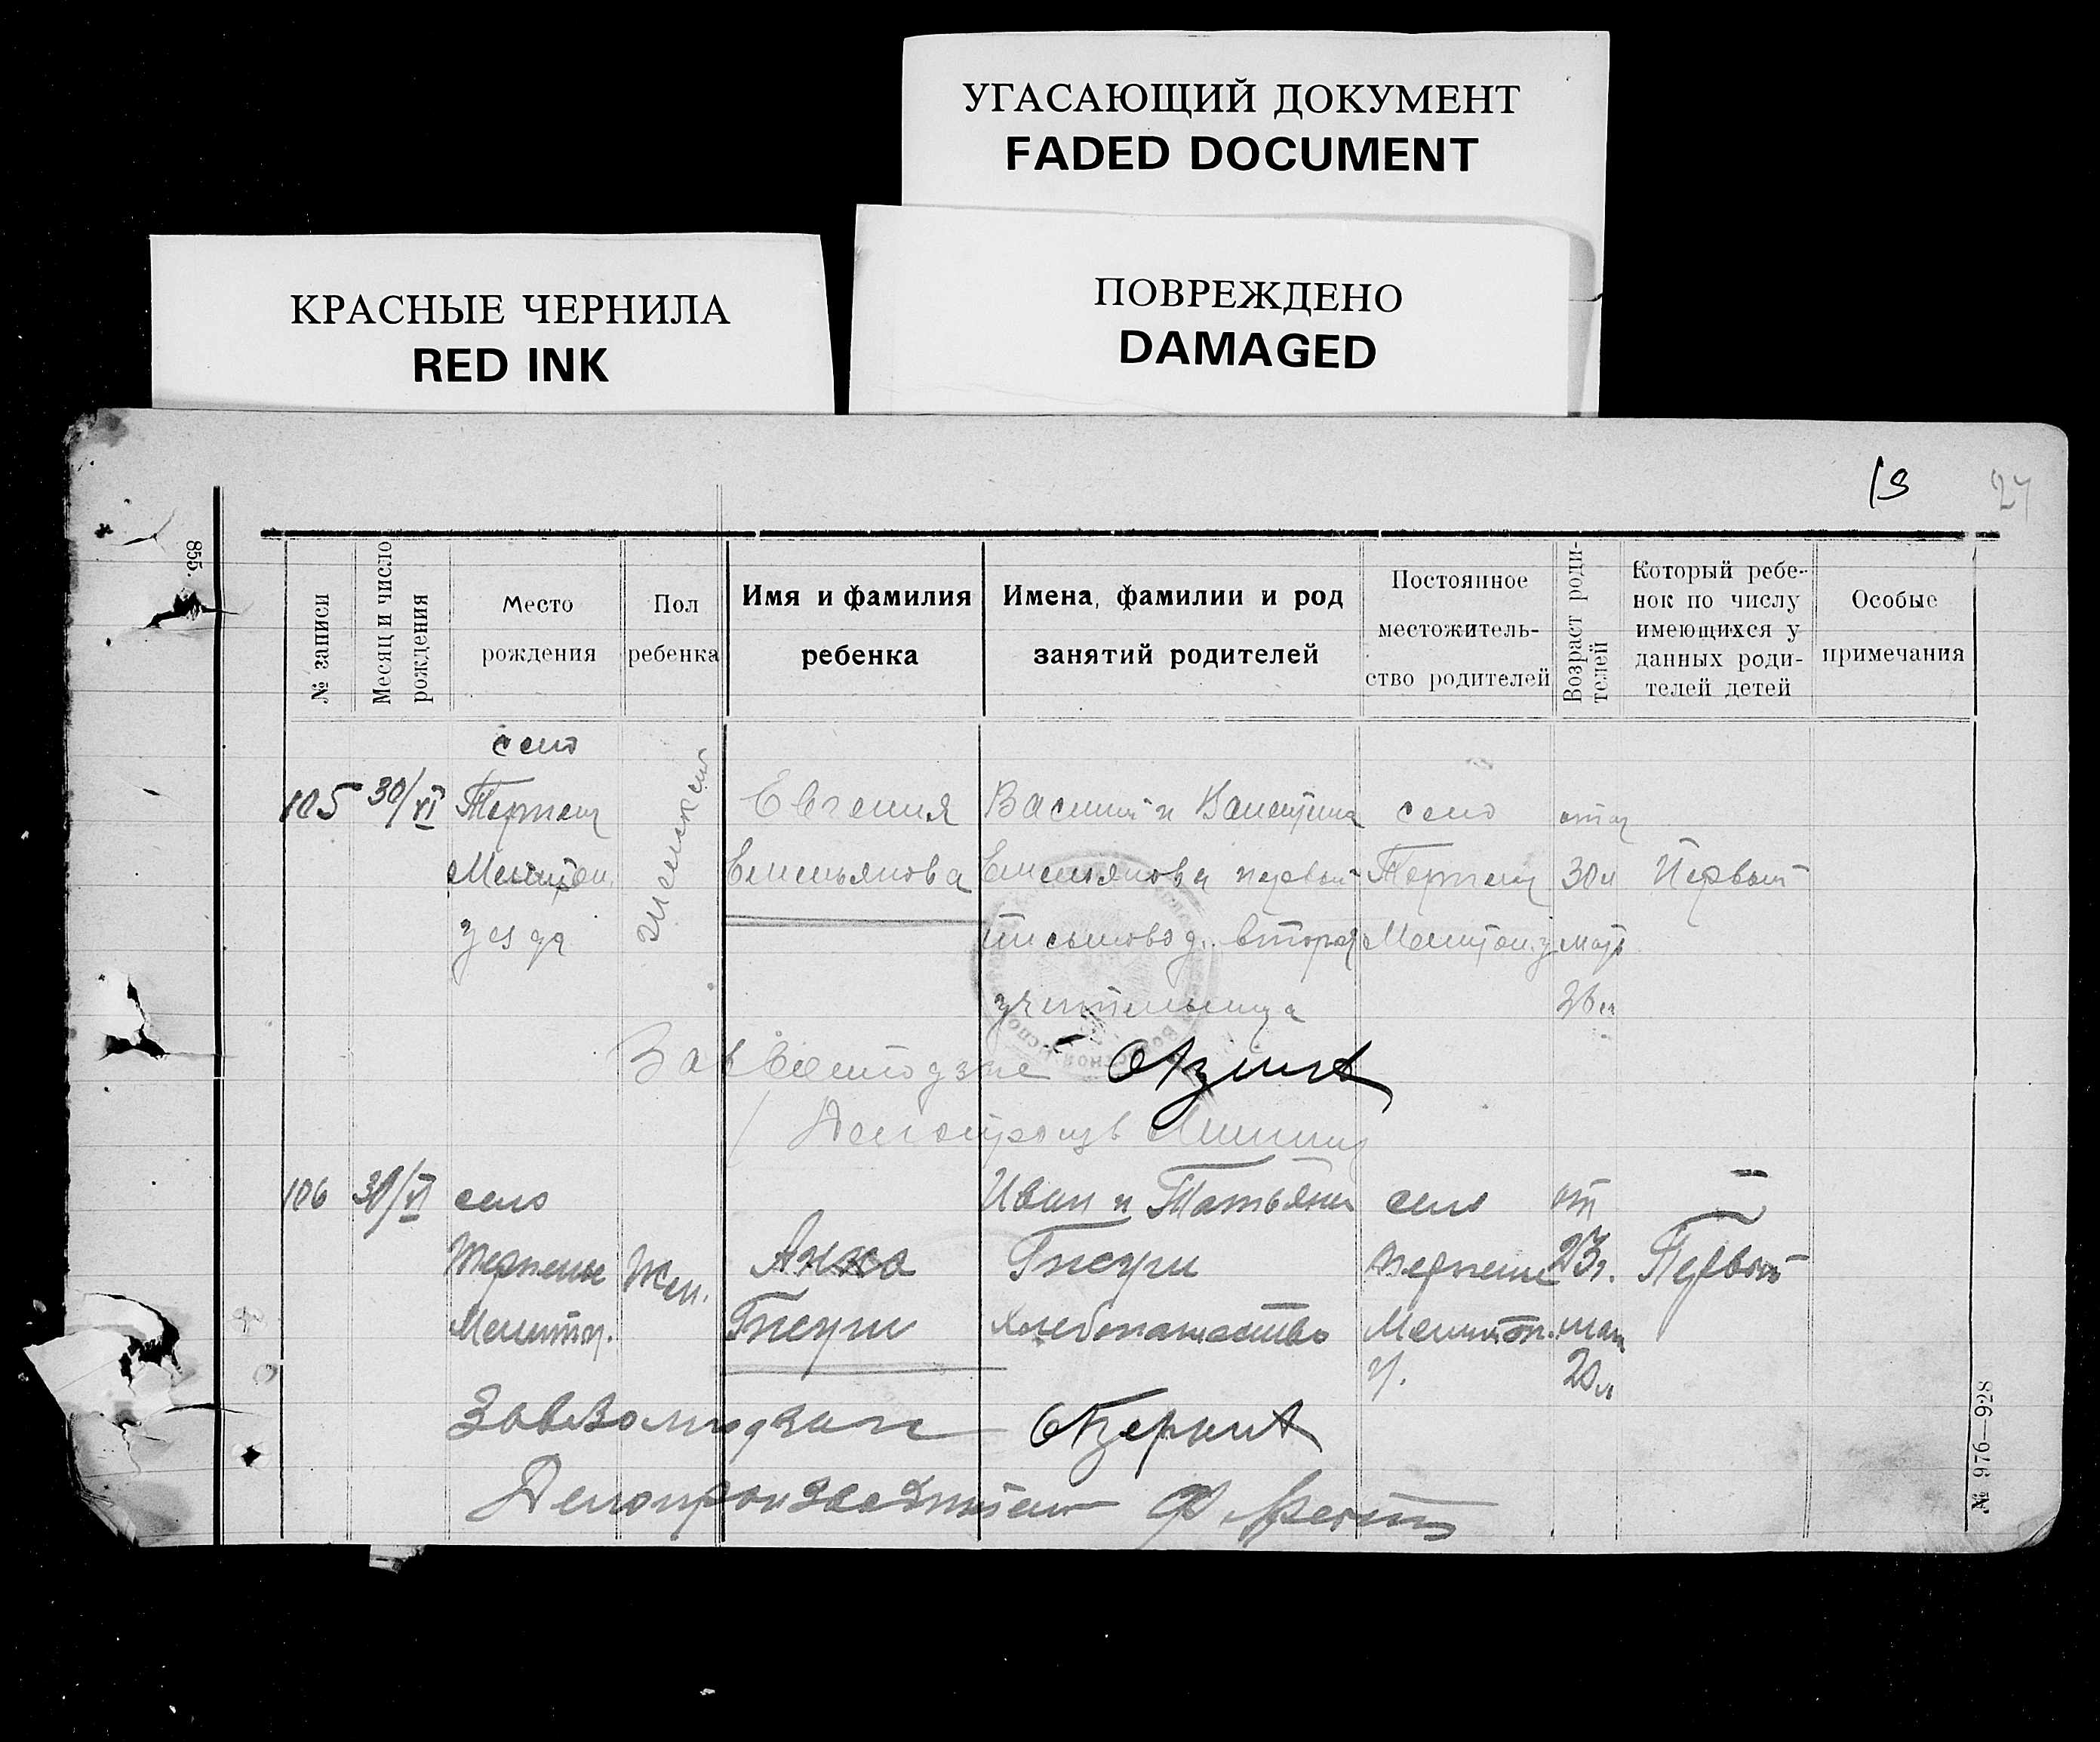 УГАСАЮЩИЙ ДОКУМЕНТ
FADED DOCUMENT
КРАСНЫЕ ЧЕРНИЛА
RED INK
ПОВРЕЖДЕНО
DAMAGED
19
27
855.
№ записи
Месяц и число рождения
Место рождения
Пол ребенка
Имя и фамилия ребенка
Имена, фамилии и род занятий родителей
Постоянное местожительство родителей
Возраст родителей
Который ребенок по числу имеющихся у данных родителей детей
Особые примечания
село
105 30/VI Терпение женский Евгения Василий и Валентина село отец
Мелитоп. Емельянова Емельяновы первый Терпение 30 л Первый
уезда письмовод. вторая Мелитоп. у мать
учительница 26 л
Зав
106 30/VI село Иван и Татьяна село от
Терпение Жен. Анна Гнеуш Терпение 23 г. Первый
Мелитоп. Гнеуш хлебопашество Мелитоп. мат
у. 20 л
Делопроизводитель
№ 976—928